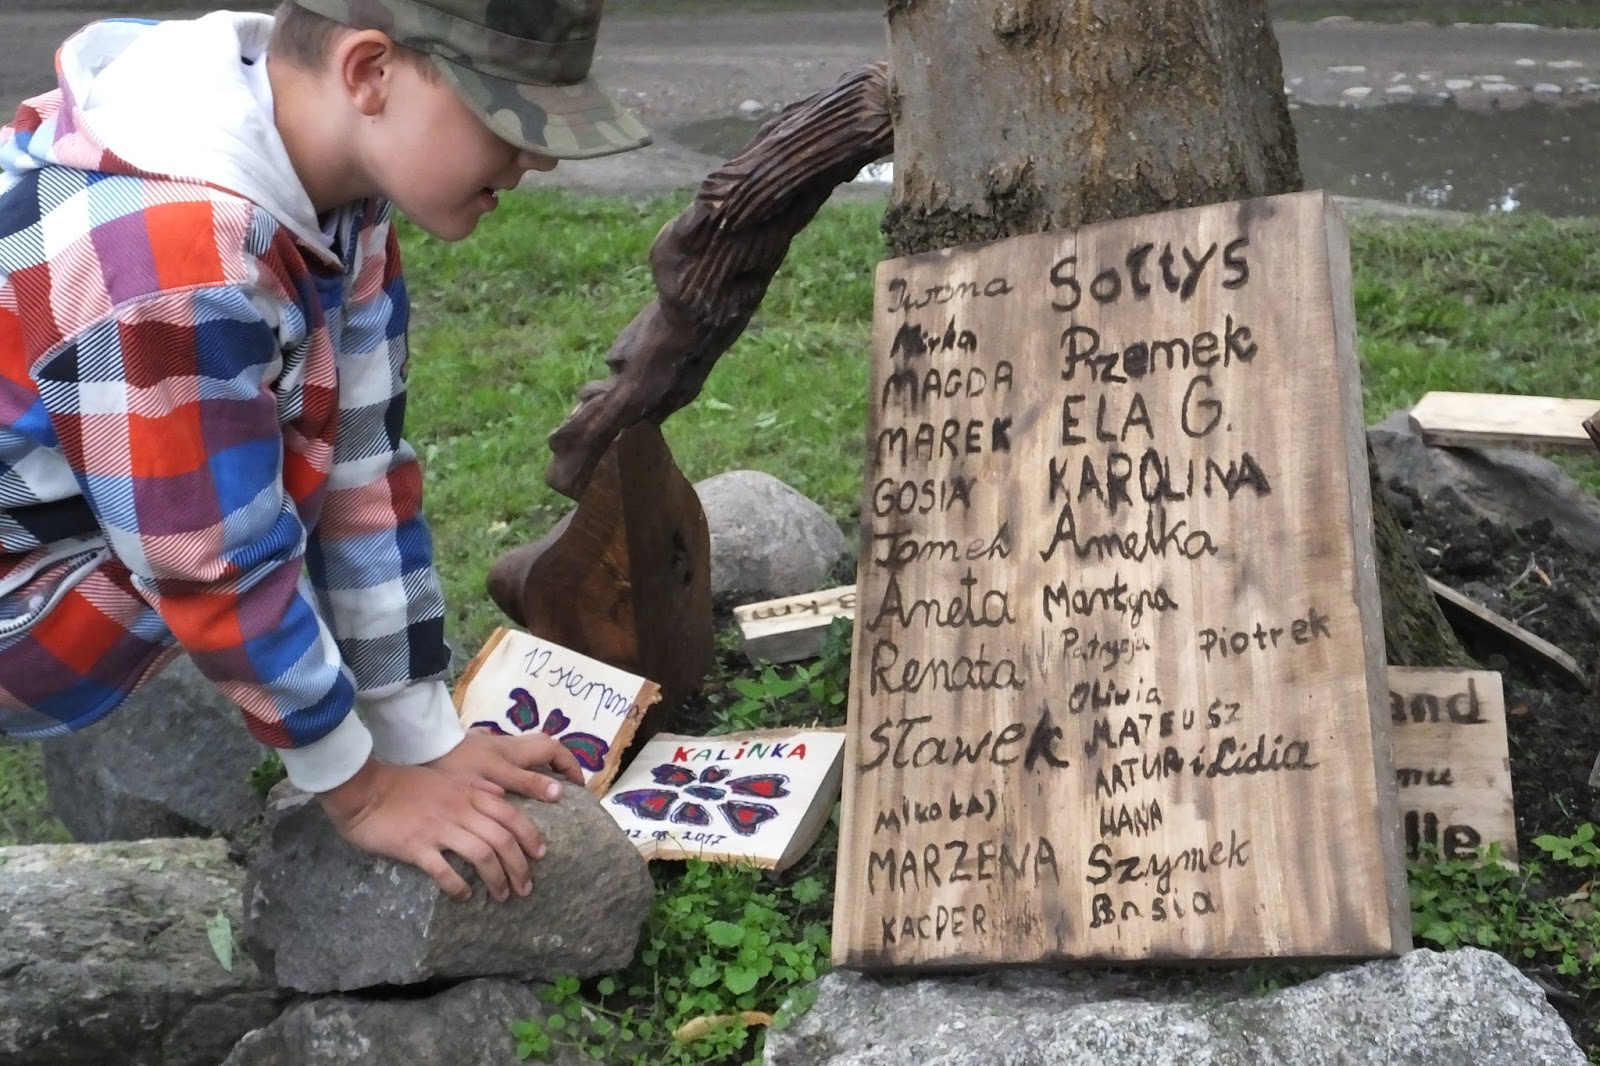 Iwona Sołtys
Mirka Przemek
MAGDA ELA G.
MAREK KAROLINA
GOSIA Amelka
Tomek Martyna
Aneta Patrycja Piotrek
Renata Oliwia
Sławek MATEUSZ
ARTUR i Lidia
Mikołaj HANA
MARZENA Szymek
KACPER Basia
12 sierpnia
KALINKA
12.08.2017
3 km
and
mu
lle